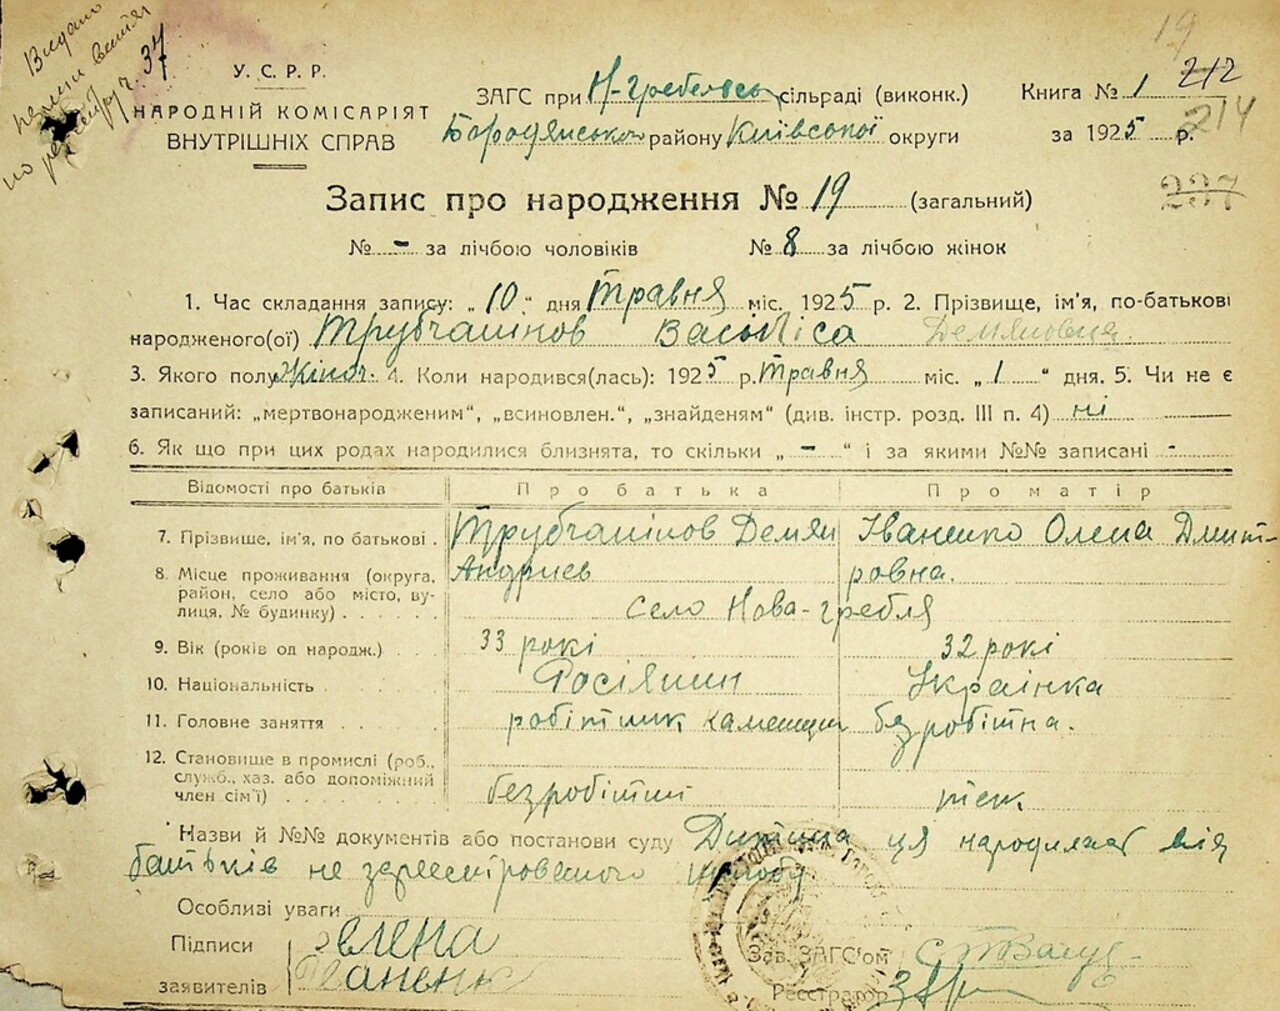 Видано
по реєстру ч. 37
19
У. С. Р. Р.
НАРОДНІЙ КОМІСАРІЯТ
ВНУТРІШНІХ СПРАВ
ЗАГС при Н-Гребельськ. сільраді (виконк.)
Бородянського району Київської округи
Книга № 1 212
за 1925 р. 214
237
Запис про народження № 19 (загальний)
№ - за лічбою чоловіків № 8 за лічбою жінок
1. Час складання запису: „10“ дня Травня міс. 1925 р. 2. Прізвище, ім'я, по-батькові
народженого(ої) Трубчанінов Василіса Демяновна
3. Якого полу Жіноч. 4. Коли народився(лась): 1925 р. Травня міс. „1“ дня. 5. Чи не є
записаний: „мертвонародженим“, „всиновлен.“, „знайденям“ (див. інстр. розд. III п. 4) ні
6. Як що при цих родах народилися близнята, то скільки „-“ і за якими №№ записані -
Відомості про батьків Про батька Про матір
7. Прізвише, ім'я, по батькові . Трубчанінов Демян Іваненко Олена Дмит-
Андриев ровна.
8. Місце проживання (округа,
район, село або місто, ву-
лиця, № будинку) . . . . . . село Нова-гребля
9. Вік (років од народж.) . . . 33 рокі 32 рокі
10. Національність . . . . . Росіянин Украінка
11. Головне заняття . . . . . робітник каменщик безробітна.
12. Становище в промислі (роб.,
служб., хаз. або допоміжний
член сім'ї) . . . . . . . . безробітний теж
Назви й №№ документів або постанови суду Дитина ця народилась від
батьків не зареєстрованого шлюбу
Особливі уваги
Підписи Елена
заявителів Іаненк
Зав. ЗАГС'ом
Реєстратор